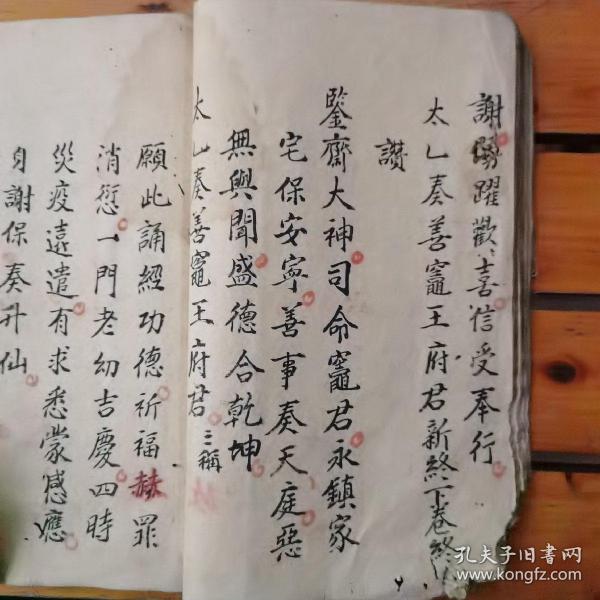 謝踴躍歡〻喜信受奉行
太乚奏善竈王府君新終下卷終
讚
鑒齋大神司命竈君永鎮家
宅保安寧善事奏天庭惡
無與聞盛德合乾坤
太乚奏善竈王府君三稱
願此誦經功德祈福赦罪
消愆一門老幼吉慶四時
災疫遠遣有求悉蒙感應
自謝保奏升仙
孔夫子旧书网
www.kongfz.com